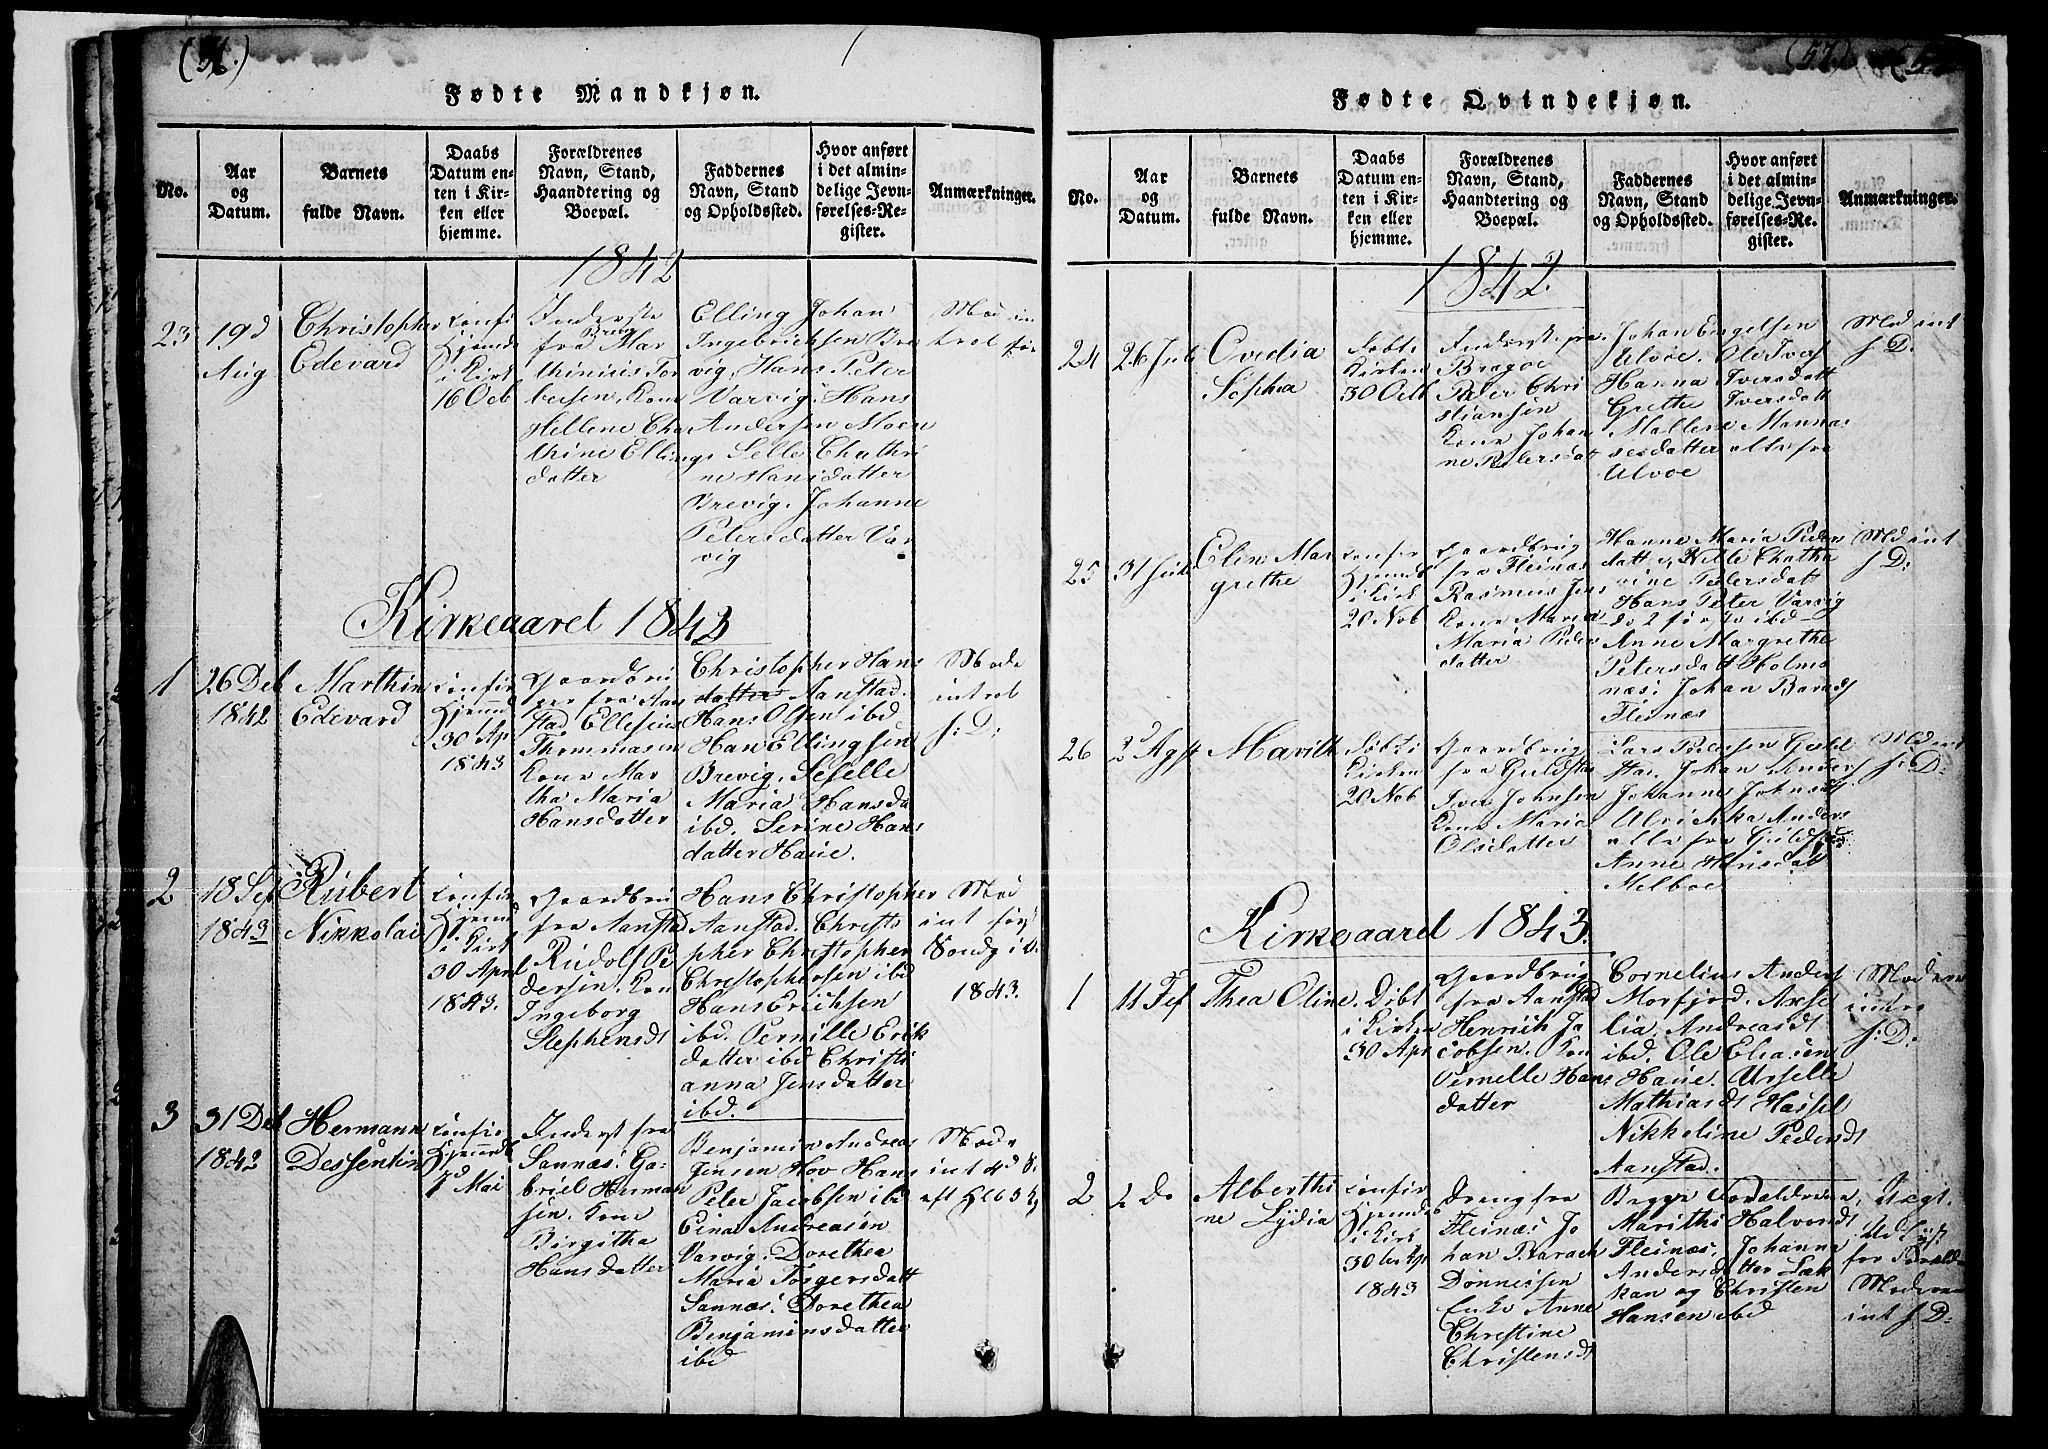 (56.)
Fødte Mandkjøn.
No.
Aar
og
Datum.
Barnets
fulde Navn.
Daabs
Datum en-
ten i Kir-
ken eller
hjemme.
Forældrenes
Navn, Stand,
Haandtering og
Boepæl.
Faddernes
Navn, Stand
og Opholdssted.
Hvor anført
i det almin-
delige Jevn-
førelses-Re-
gister.
Anmærkninger.
1842
23
19d
Aug
Christopher
Edevard
Confir
Hjemd
i Kirk
16 Ocb
Inderste
fra Brevig Mar
thinius Tor
bersen, Kone
Hellene Cha
thine Ellings
datter
Elling Johan
Ingebrichsen Bre
vig, Hans Peter
Varvig. Hans
Andersen Moen
Selle Chathri
ne Hansdatter
Brevig. Johanne
Petersdatter Var
vig
Kirkeaaret 1843
1
26 Det
1842
Marthin
Edevard
Confir
Hjemd
30 Ap
1843
Gaardbru
ger fra Aan
stad Ellesius
Thommasen
Kone Mar
tha Maria
Hansdatter
Christopher Hans
datter Aanstad.
Hans Olsen ibd
Han Ellingsen
Brevig, Seselle
Maria Hansda
ibd. Serine Hans
datter Haue.
Mode
introl
s: D:
2
18 Sep
1843
Rubert
Nikkolai
Confir
Hjemd
i Kirk
30 Apr
1843.
Gaardbru
fra Aanstad
Rudolf Pe
dersen. Kon
Ingeborg
Stephensdt
Hans Christopher
Aanstad. Christo
pher Christopher
Christophersen ibd
Hans Erichsen
ibd. Pernille Erik
datter ibd Christi
anna Jensdatter
ibd.
Mod
int før
Sondg i
1843.
3
31 Det
1842
Hermann
Dessentin
Confir
Hjemd
Mai
Inderst fra
Sannæs: Ga-
briel Herman
sen. Kone
Birgitha
Hansdatter
Benjamin Andreas
Jensen Hov Hans
Peter Jacobsen ibd
Eina Andreasen
Varvig. Dorethea
Maria Torgersdatt
Sannæs: Dorethea
Benjaminsdatter
ibd
Mode
int 4d S.
eft
(57)
Fødte Qvindekjøn.
No.
Aar
og
Datum.
Barnets
fulde Navn.
Daabs
Datum en-
ten i Kir-
ken eller
hjemme.
Forældrenes
Navn, Stand,
Haandtering og
Boepæl.
Faddernes
Navn, Stand
og Opholdssted.
Hvor anført
i det almin-
delige Jevn-
førelses-Re-
gister.
Anmærkninger.
1842.
24
26 Juli
Ovedia
Sophia
Døbt i
Kirken
30 Octb
Inderst fra
Bragøe
Peter Chri
stiansen
Kone Johan
ne Petersdat
Johan Engelsen
Ulvøe. Ole Ivers
Hanna Iversdatt
Grethe Iversdatt
Mallene Mannas
sesdatter alle fra
Ulvoe
Mod int
s: D:
25
31 Juli
Elen Mar
grethe
Confir
Hjemd
i Kirk
20 Nob
Gaardbrug
fra Fleinæs
Rasmus Jens
Kone Maren
Maria Peders
datter
Hanne Maria Peder
datt Nille Chatha
rine Petersdatt
Hans Peter Varvig
Do 2 første ibd
Anne Margrethe
Petersdatt Holms
næs: Johan Barach
Fleinæs
Md int
s D:
26
2d Agst
Marith
Døbt i
Kirken
20 Nob
Gaardbrug
fra Guldsta
Iver Johnsen
Kone Maria
Olsdatter
Lars Pedersen Guld
stad. Johan Anders
Johannes Johnsdt
Ulrichka Anders
alle fra Guldstad
Anne Hansdatt
Melboe
Md int
s: D:
Kirkeaaret 1843.
1
11 Feb
Thea Oline.
Døbt
i Kirken
30 Apr
Gaardbrug
fra Aanstad
Henrich Ja
cobsen. Kon
Pernelle Hans
datter
Cornelius Anders
Morfjord. Axse
lia Andreasdt
ibd. Ole Eliasen
Haue. Urselle
Mathiasdt Hassel
Nikkoline Pedersdt
Aanstad.
Moderen
indro
s: D:
2
2 Do
Alberthi
ne Lydia
Confir
Hjemdøb
i Kirk
30 te Ap
1843
Dreng fra
Fleinæs Jo
han Barach
Dønnesen
Enke Anne
Christine
Christensdt
Begge Forældrene
Marithe Halvorsdt
Fleinæs: Johanna
Andersdatter Sak
kan og Christen
Hansen ibd
Uægt.
Udlyst
for Foræld
Moderen
int s D: